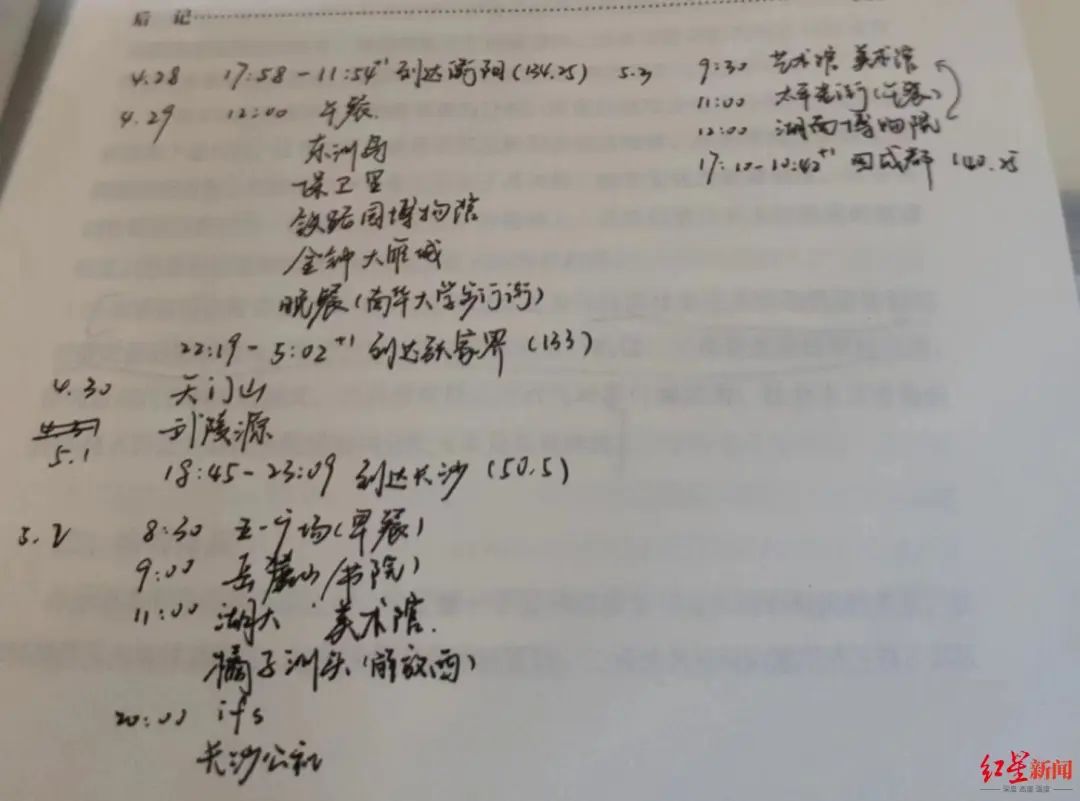 后 记
4.28 17:58-11:54+1 到达衡阳(134.25)
4.29 12:00 午餐.
东洲岛
保卫里
铁路园博物馆
金钟大雁城
晚餐(南华大学步行街)
22:19-5:02+1 到达张家界(133)
4.30 天门山
武陵源
5.1
18:45-23:09 到达长沙(50.5)
5.2 8:30 五一广场(早餐)
9:00 岳麓山(书院)
11:00 湖大 美术馆.
橘子洲头(解放西)
20:00 ifs
长沙公社
5.3 9:30 艺术馆 美术馆
11:00 太平老街(午餐)
12:00 湖南博物院
17:10-10:42+1 回成都 140.25
红星新闻
深度 态度 温度